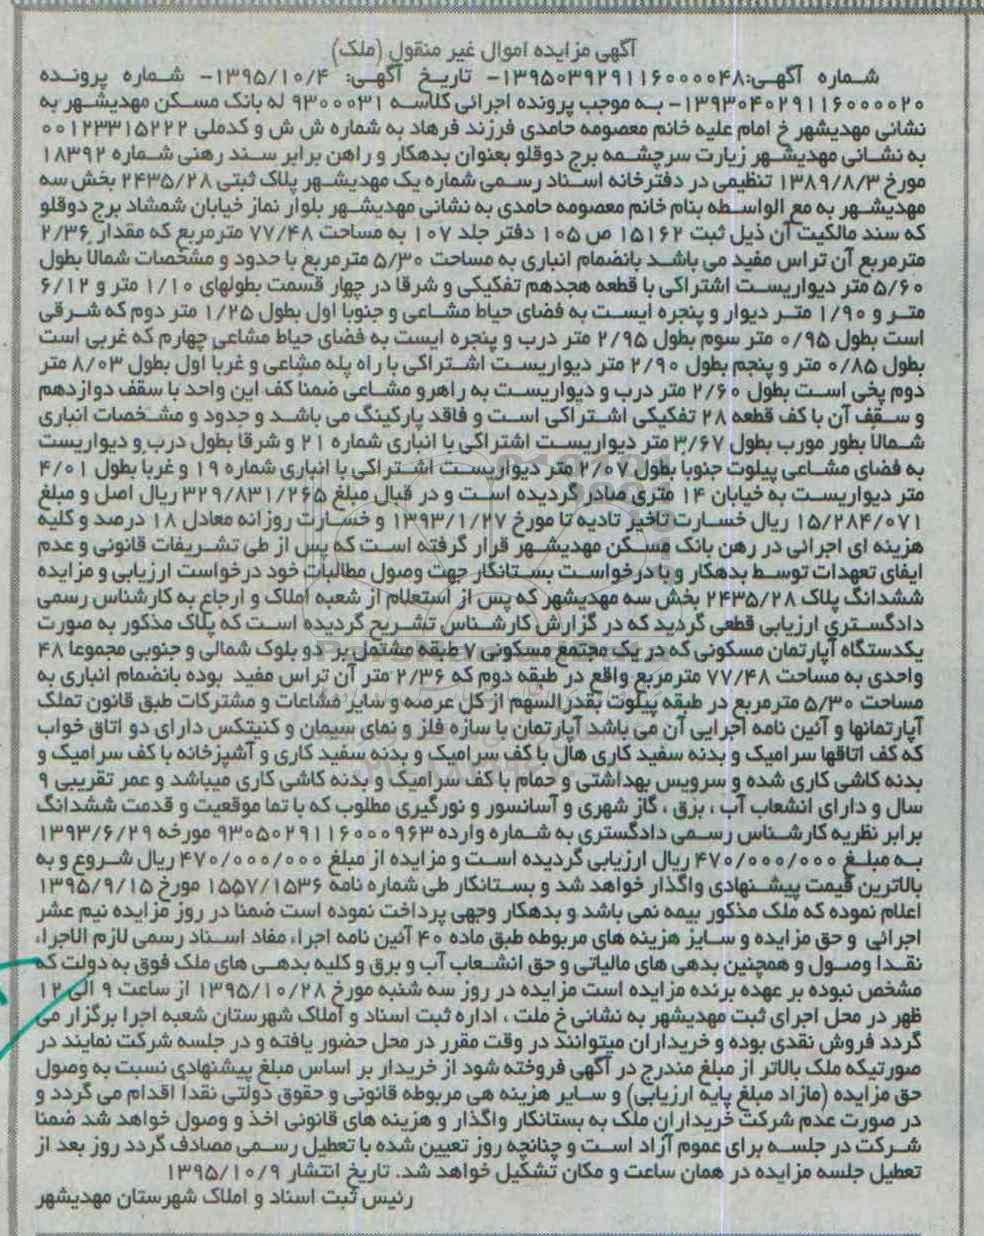 آگهی مزایده اموال غیر منقول (ملک)
شماره آگهی:۱۳۹۵۰۳۹۲۹۱۱۶۰۰۰۰۴۸- تاریخ آگهی: ۱۳۹۵/۱۰/۴- شماره پرونده
۱۳۹۳۰۴۰۲۹۱۱۶۰۰۰۰۲۰- به موجب پرونده اجرائی کلاسه ۹۳۰۰۰۳۱ له بانک مسکن مهدیشهر به
نشانی مهدیشهر خ امام علیه خانم معصومه حامدی فرزند فرهاد به شماره ش ش و کدملی ۰۰۱۲۳۳۱۵۲۲۲
به نشانی مهدیشهر زیارت سرچشمه برج دوقلو بعنوان بدهکار و راهن برابر سند رهنی شماره ۱۸۳۹۲
مورخ ۱۳۸۹/۸/۳ تنظیمی در دفترخانه اسناد رسمی شماره یک مهدیشهر پلاک ثبتی ۲۴۳۵/۲۸ بخش سه
مهدیشهر به مع الواسطه بنام خانم معصومه حامدی به نشانی مهدیشهر بلوار نماز خیابان شمشاد برج دوقلو
که سند مالکیت آن ذیل ثبت ۱۵۱۶۲ ص ۱۰۵ دفتر جلد ۱۰۷ به مساحت ۷۷/۴۸ مترمربع که مقدار ۲/۳۶
مترمربع آن تراس مفید می باشد بانضمام انباری به مساحت ۵/۳۰ مترمربع با حدود و مشخصات شمالا بطول
۵/۶۰ متر دیواریست اشتراکی با قطعه هجدهم تفکیکی و شرقا در چهار قسمت بطولهای ۱/۱۰ متر و ۶/۱۲
متر و ۱/۹۰ متر دیوار و پنجره ایست به فضای حیاط مشاعی و جنوبا اول بطول ۱/۲۵ متر دوم که شرقی
است بطول ۰/۹۵ متر سوم بطول ۲/۹۵ متر درب و پنجره ایست به فضای حیاط مشاعی چهارم که غربی است
بطول ۰/۸۵ متر و پنجم بطول ۲/۹۰ متر دیواریست اشتراکی با راه پله مشاعی و غربا اول بطول ۸/۰۳ متر
دوم پخی است بطول ۲/۶۰ متر درب و دیواریست به راهرو مشاعی ضمنا کف این واحد با سقف دوازدهم
و سقف آن با کف قطعه ۲۸ تفکیکی اشتراکی است و فاقد پارکینگ می باشد و حدود و مشخصات انباری
شمالا بطور مورب بطول ۳/۶۷ متر دیواریست اشتراکی با انباری شماره ۲۱ و شرقا بطول درب و دیواریست
به فضای مشاعی پیلوت جنوبا بطول ۲/۰۷ متر دیواریست اشتراکی با انباری شماره ۱۹ و غربا بطول ۴/۰۱
متر دیواریست به خیابان ۱۴ متری صادر گردیده است و در قبال مبلغ ۳۲۹/۸۳۱/۲۶۵ ریال اصل و مبلغ
۱۵/۲۸۴/۰۷۱ ریال خسارت تاخیر تادیه تا مورخ ۱۳۹۳/۱/۲۷ و خسارت روزانه معادل ۱۸ درصد و کلیه
هزینه ای اجرائی در رهن بانک مسکن مهدیشهر قرار گرفته است که پس از طی تشریفات قانونی و عدم
ایفای تعهدات توسط بدهکار و با درخواست بستانکار جهت وصول مطالبات خود درخواست ارزیابی و مزایده
ششدانگ پلاک ۲۴۳۵/۲۸ بخش سه مهدیشهر که پس از استعلام از شعبه املاک و ارجاع به کارشناس رسمی
دادگستری ارزیابی قطعی گردید که در گزارش کارشناس تشریح گردیده است که پلاک مذکور به صورت
یکدستگاه آپارتمان مسکونی که در یک مجتمع مسکونی ۷ طبقه مشتمل بر دو بلوک شمالی و جنوبی مجموعا ۴۸
واحدی به مساحت ۷۷/۴۸ مترمربع واقع در طبقه دوم که ۲/۳۶ متر آن تراس مفید بوده بانضمام انباری به
مساحت ۵/۳۰ مترمربع در طبقه پیلوت بقدرالسهم از کل عرصه و سایر مشاعات و مشترکات طبق قانون تملک
آپارتمانها و آئین نامه اجرایی آن می باشد آپارتمان با سازه فلز و نمای سیمان و کنیتکس دارای دو اتاق خواب
که کف اتاقها سرامیک و بدنه سفید کاری هال با کف سرامیک و بدنه سفید کاری و آشپزخانه با کف سرامیک و
بدنه کاشی کاری شده و سرویس بهداشتی و حمام با کف سرامیک و بدنه کاشی کاری میباشد و عمر تقریبی ۹
سال و دارای انشعاب آب ، برق ، گاز شهری و آسانسور و نورگیری مطلوب که با تما موقعیت و قدمت ششدانگ
برابر نظریه کارشناس رسمی دادگستری به شماره وارده ۹۳۰۵۰۲۹۱۱۶۰۰۰۹۶۳ مورخه ۱۳۹۳/۶/۲۹
به مبلغ ۴۷۰/۰۰۰/۰۰۰ ریال ارزیابی گردیده است و مزایده از مبلغ ۴۷۰/۰۰۰/۰۰۰ ریال شروع و به
بالاترین قیمت پیشنهادی واگذار خواهد شد و بستانکار طی شماره نامه ۱۵۵۷/۱۵۳۶ مورخ ۱۳۹۵/۹/۱۵
اعلام نموده که ملک مذکور بیمه نمی باشد و بدهکار وجهی پرداخت نموده است ضمنا در روز مزایده نیم عشر
اجرائی و حق مزایده و سایز هزینه های مربوطه طبق ماده ۴۰ آئین نامه اجراء مفاد اسناد رسمی لازم الاجراء
نقدا وصول و همچنین بدهی های مالیاتی و حق انشعاب آب و برق و کلیه بدهی های ملک فوق به دولت که
مشخص نبوده بر عهده برنده مزایده است مزایده در روز سه شنبه مورخ ۱۳۹۵/۱۰/۲۸ از ساعت ۹ الی ۱۲
ظهر در محل اجرای ثبت مهدیشهر به نشانی خ ملت ، اداره ثبت اسناد و آملاک شهرستان شعبه اجرا برگزار می
گردد فروش نقدی بوده و خریداران میتوانند در وقت مقرر در محل حضور یافته و در جلسه شرکت نمایند در
صورتیکه ملک بالاتر از مبلغ مندرج در آگهی فروخته شود از خریدار بر اساس مبلغ پیشنهادی نسبت به وصول
حق مزایده (مازاد مبلغ پایه ارزیابی) و سایر هزینه هی مربوطه قانونی و حقوق دولتی نقدا اقدام می گردد و
در صورت عدم شرکت خریداران ملک به بستانکار واگذار و هزینه های قانونی اخذ و وصول خواهد شد ضمنا
شرکت در جلسه برای عموم آزاد است و چنانچه روز تعیین شده با تعطیل رسمی مصادف گردد روز بعد از
تعطیل جلسه مزایده در همان ساعت و مکان تشکیل خواهد شد. تاریخ انتشار ۱۳۹۵/۱۰/۹
رئیس ثبت اسناد و املاک شهرستان مهدیشهر